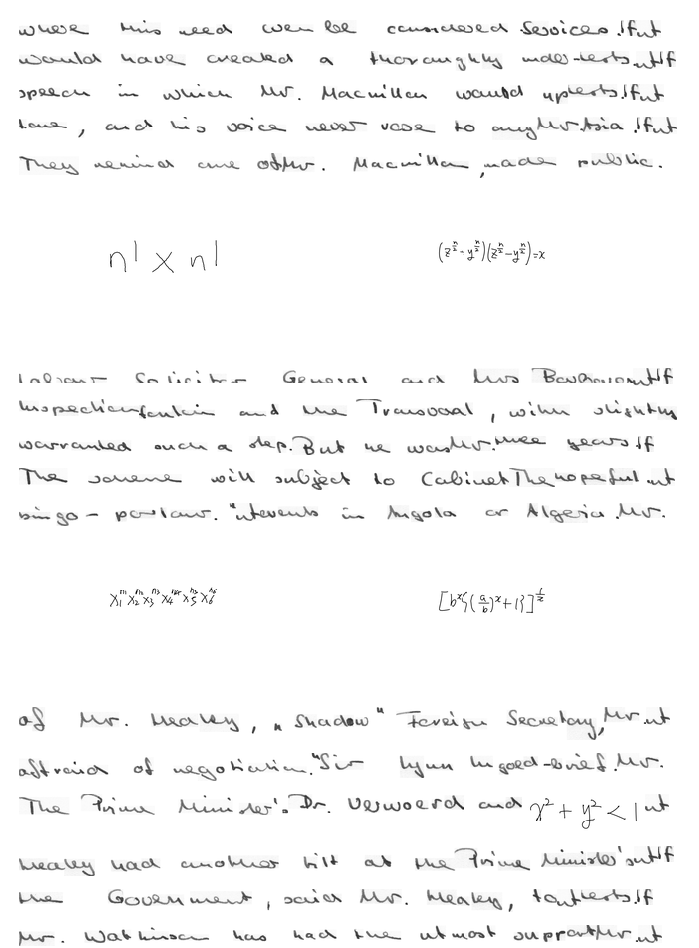 where this need even be considered. Services. If ut
would have created a thoroughly under-tests. ut If
speech in which Mr. Macmillan would up tests. If ut
Lane, and his voice never rose to any Mr. Asia. If ut
They remind one of Mr. Macmillan, made public.
n! × n!
(z^{\frac{n}{2}} - y^{\frac{n}{2}})(z^{\frac{n}{2}} - y^{\frac{n}{2}}) = x
Labour Solicitor General and this ut If
Inspection and the Transvaal, with slightly
warranted such a step. But he was Mr. three years If
The scheme will subject to Cabinet The hopeful. ut
bingo - parlour. "events in Angola or Algeria. Mr.
x_1^{n_1} x_2^{n_2} x_3^{n_3} x_4^{n_4} x_5^{n_5} x_6^{n_6}
[b^x{(\frac{a}{b})^x + 1}]^{\frac{1}{z}}
of Mr. Healey, "Shadow" Foreign Secretary, Mr. ut
afraid of negotiation." Sir Lynn Ungoed-brief. Mr.
The Prime Minister's. Dr. Verwoerd and x^2 + y^2 < 1 ut
Healey had another tilt at the Prime Minister's ut If
the Government, said Mr. Healey, to ut tests. If
Mr. Watkinson has had the utmost support Mr. ut